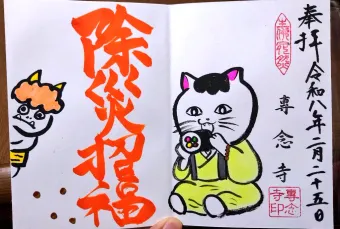 奉拝 令和八年二月二十五日
専念寺
専念
寺印
除災招福